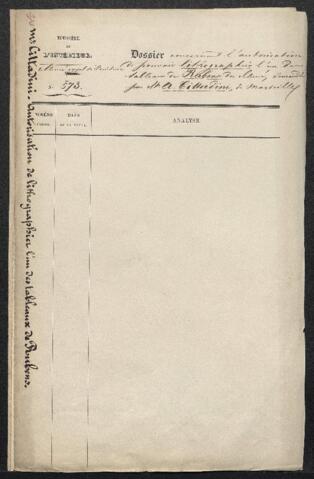 MINISTÈRE
DE
L'INTÉRIEUR.
N° 573.
Dossier concernant l'autorisation
de pouvoir lithographier l'un des
tableaux de Rubens du Musée, demandée
par Mr A. Cittadini, de Marseille
NUMÉRO
D'ORDRE.
DATE
DE LA PIÈCE.
ANALYSE
Mr Cittadini. autorisation de lithographier l'un des tableaux de Rubens.